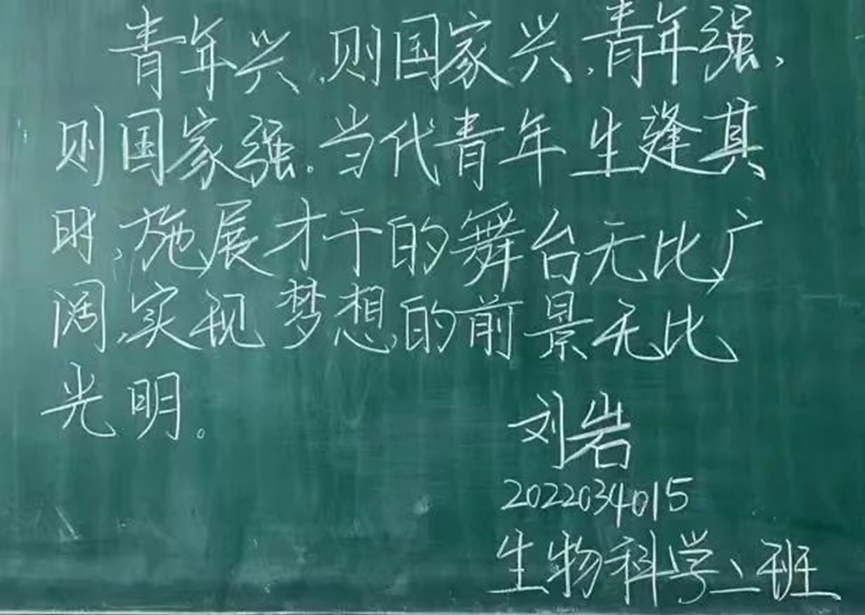 青年兴,则国家兴,青年强,
则国家强。当代青年生逢其
时,施展才干的舞台无比广
阔,实现梦想的前景无比
光明。
刘岩
2022034015
生物科学二班